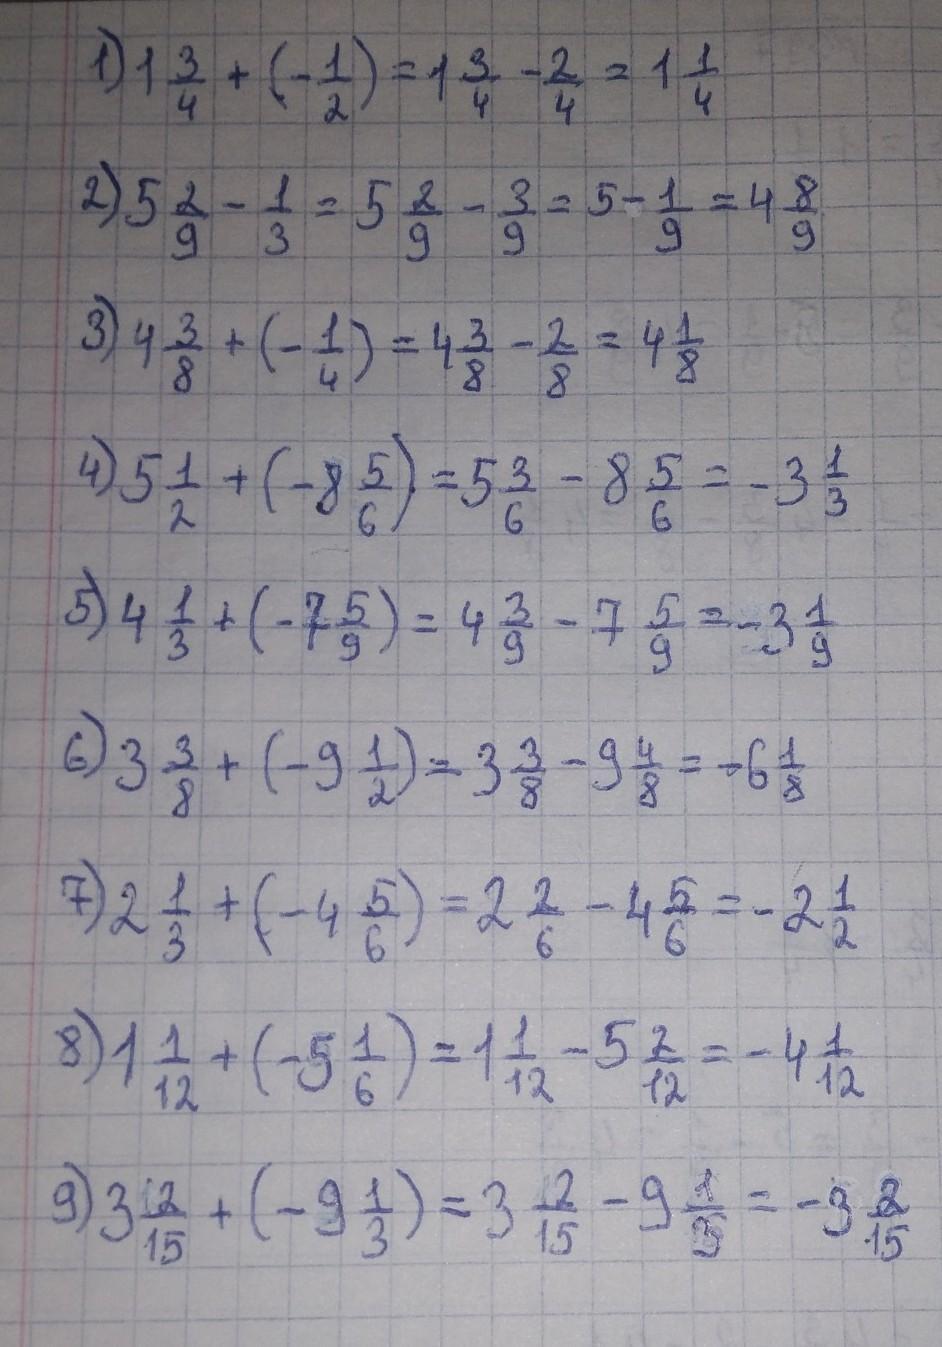 1) 1 3/4 + (- 1/2) = 1 3/4 - 2/4 = 1 1/4
2) 5 2/9 - 1/3 = 5 2/9 - 3/9 = 5 - 1/9 = 4 8/9
3) 4 3/8 + (- 1/4) = 4 3/8 - 2/8 = 4 1/8
4) 5 1/2 + (-8 5/6) = 5 3/6 - 8 5/6 = -3 1/3
5) 4 1/3 + (-7 5/9) = 4 3/9 - 7 5/9 = -3 1/9
6) 3 3/8 + (-9 1/2) = 3 3/8 - 9 4/8 = -6 1/8
7) 2 1/3 + (-4 5/6) = 2 2/6 - 4 5/6 = -2 1/2
8) 1 1/12 + (-5 1/6) = 1 1/12 - 5 2/12 = -4 1/12
9) 3 2/15 + (-9 1/3) = 3 2/15 - 9 1/3 =